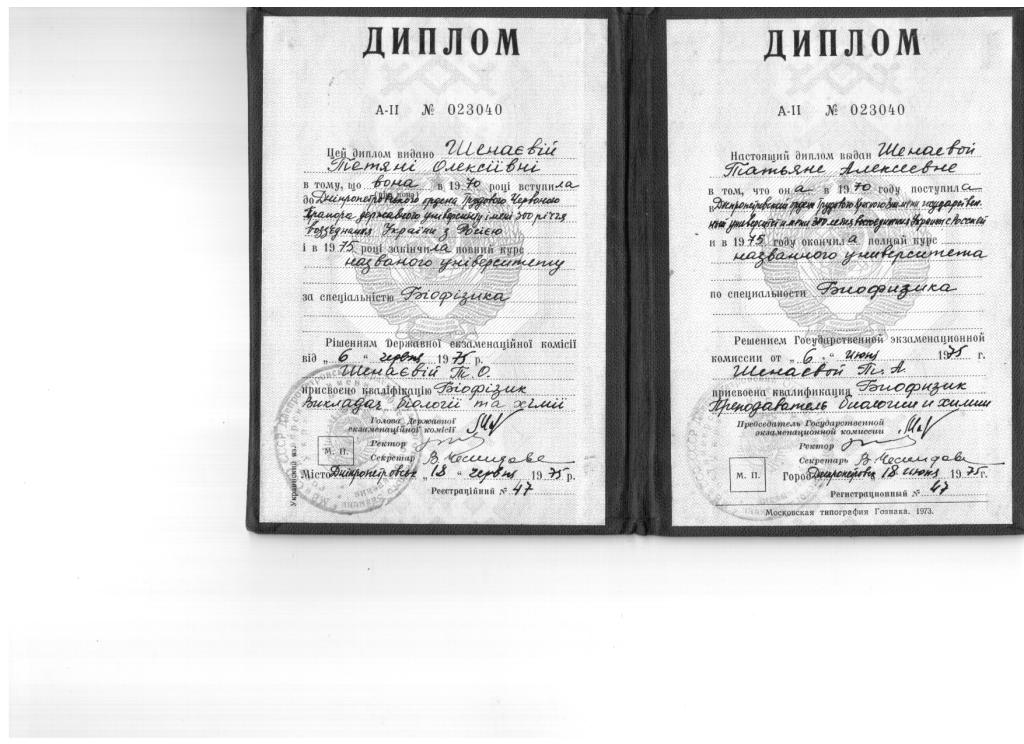 ДИПЛОМ
А-II № 023040
Цей диплом видано Шенаєвій
Тетяні Олексіївні
в тому, що вона в 1970 році вступила
до Дніпропетровського ордена Трудового Червоного
Прапора державного університету імені 300-річчя
возз'єднання України з Росією
і в 1975 році закінчила повний курс
названого університету
за спеціальністю Біофізика
Рішенням Державної екзаменаційної комісії
від „6“ червня 1975 р.
Шенаєвій Т. О.
присвоєно кваліфікацію Біофізик
Викладач біології та хімії
Голова Державної
екзаменаційної комісії
Ректор
Секретар
М. П.
Місто Дніпропетровськ „18“ червня 1975 р.
Реєстраційний № 47
ДИПЛОМ
А-II № 023040
Настоящий диплом выдан Шенаевой
Татьяне Алексеевне
в том, что она в 1970 году поступила
в Днепропетровский ордена Трудового Красного Знамени государствен-
ный университет имени 300-летия воссоединения Украины с Россией
и в 1975 году окончила полный курс
названного университета
по специальности Биофизика
Решением Государственной экзаменационной
комиссии от „6“ июня 1975 г.
Шенаевой Т. А.
присвоена квалификация Биофизик
Преподаватель биологии и химии
Председатель Государственной
экзаменационной комиссии
Ректор
Секретарь
М. П.
Город Днепропетровск 18 июня 1975 г.
Регистрационный № 47
Московская типография Гознака. 1973.